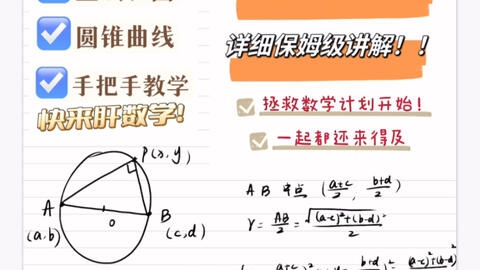 圆锥曲线
手把手教学
快来肝数学!
P(x,y)
A
(a,b)
O
B
(c,d)
详细保姆级讲解!!
拯救数学计划开始!
一起都还来得及
AB 中点 (a+c/2, b+d/2)
r = AB/2 = √(a-c)²+(b-d)²/2